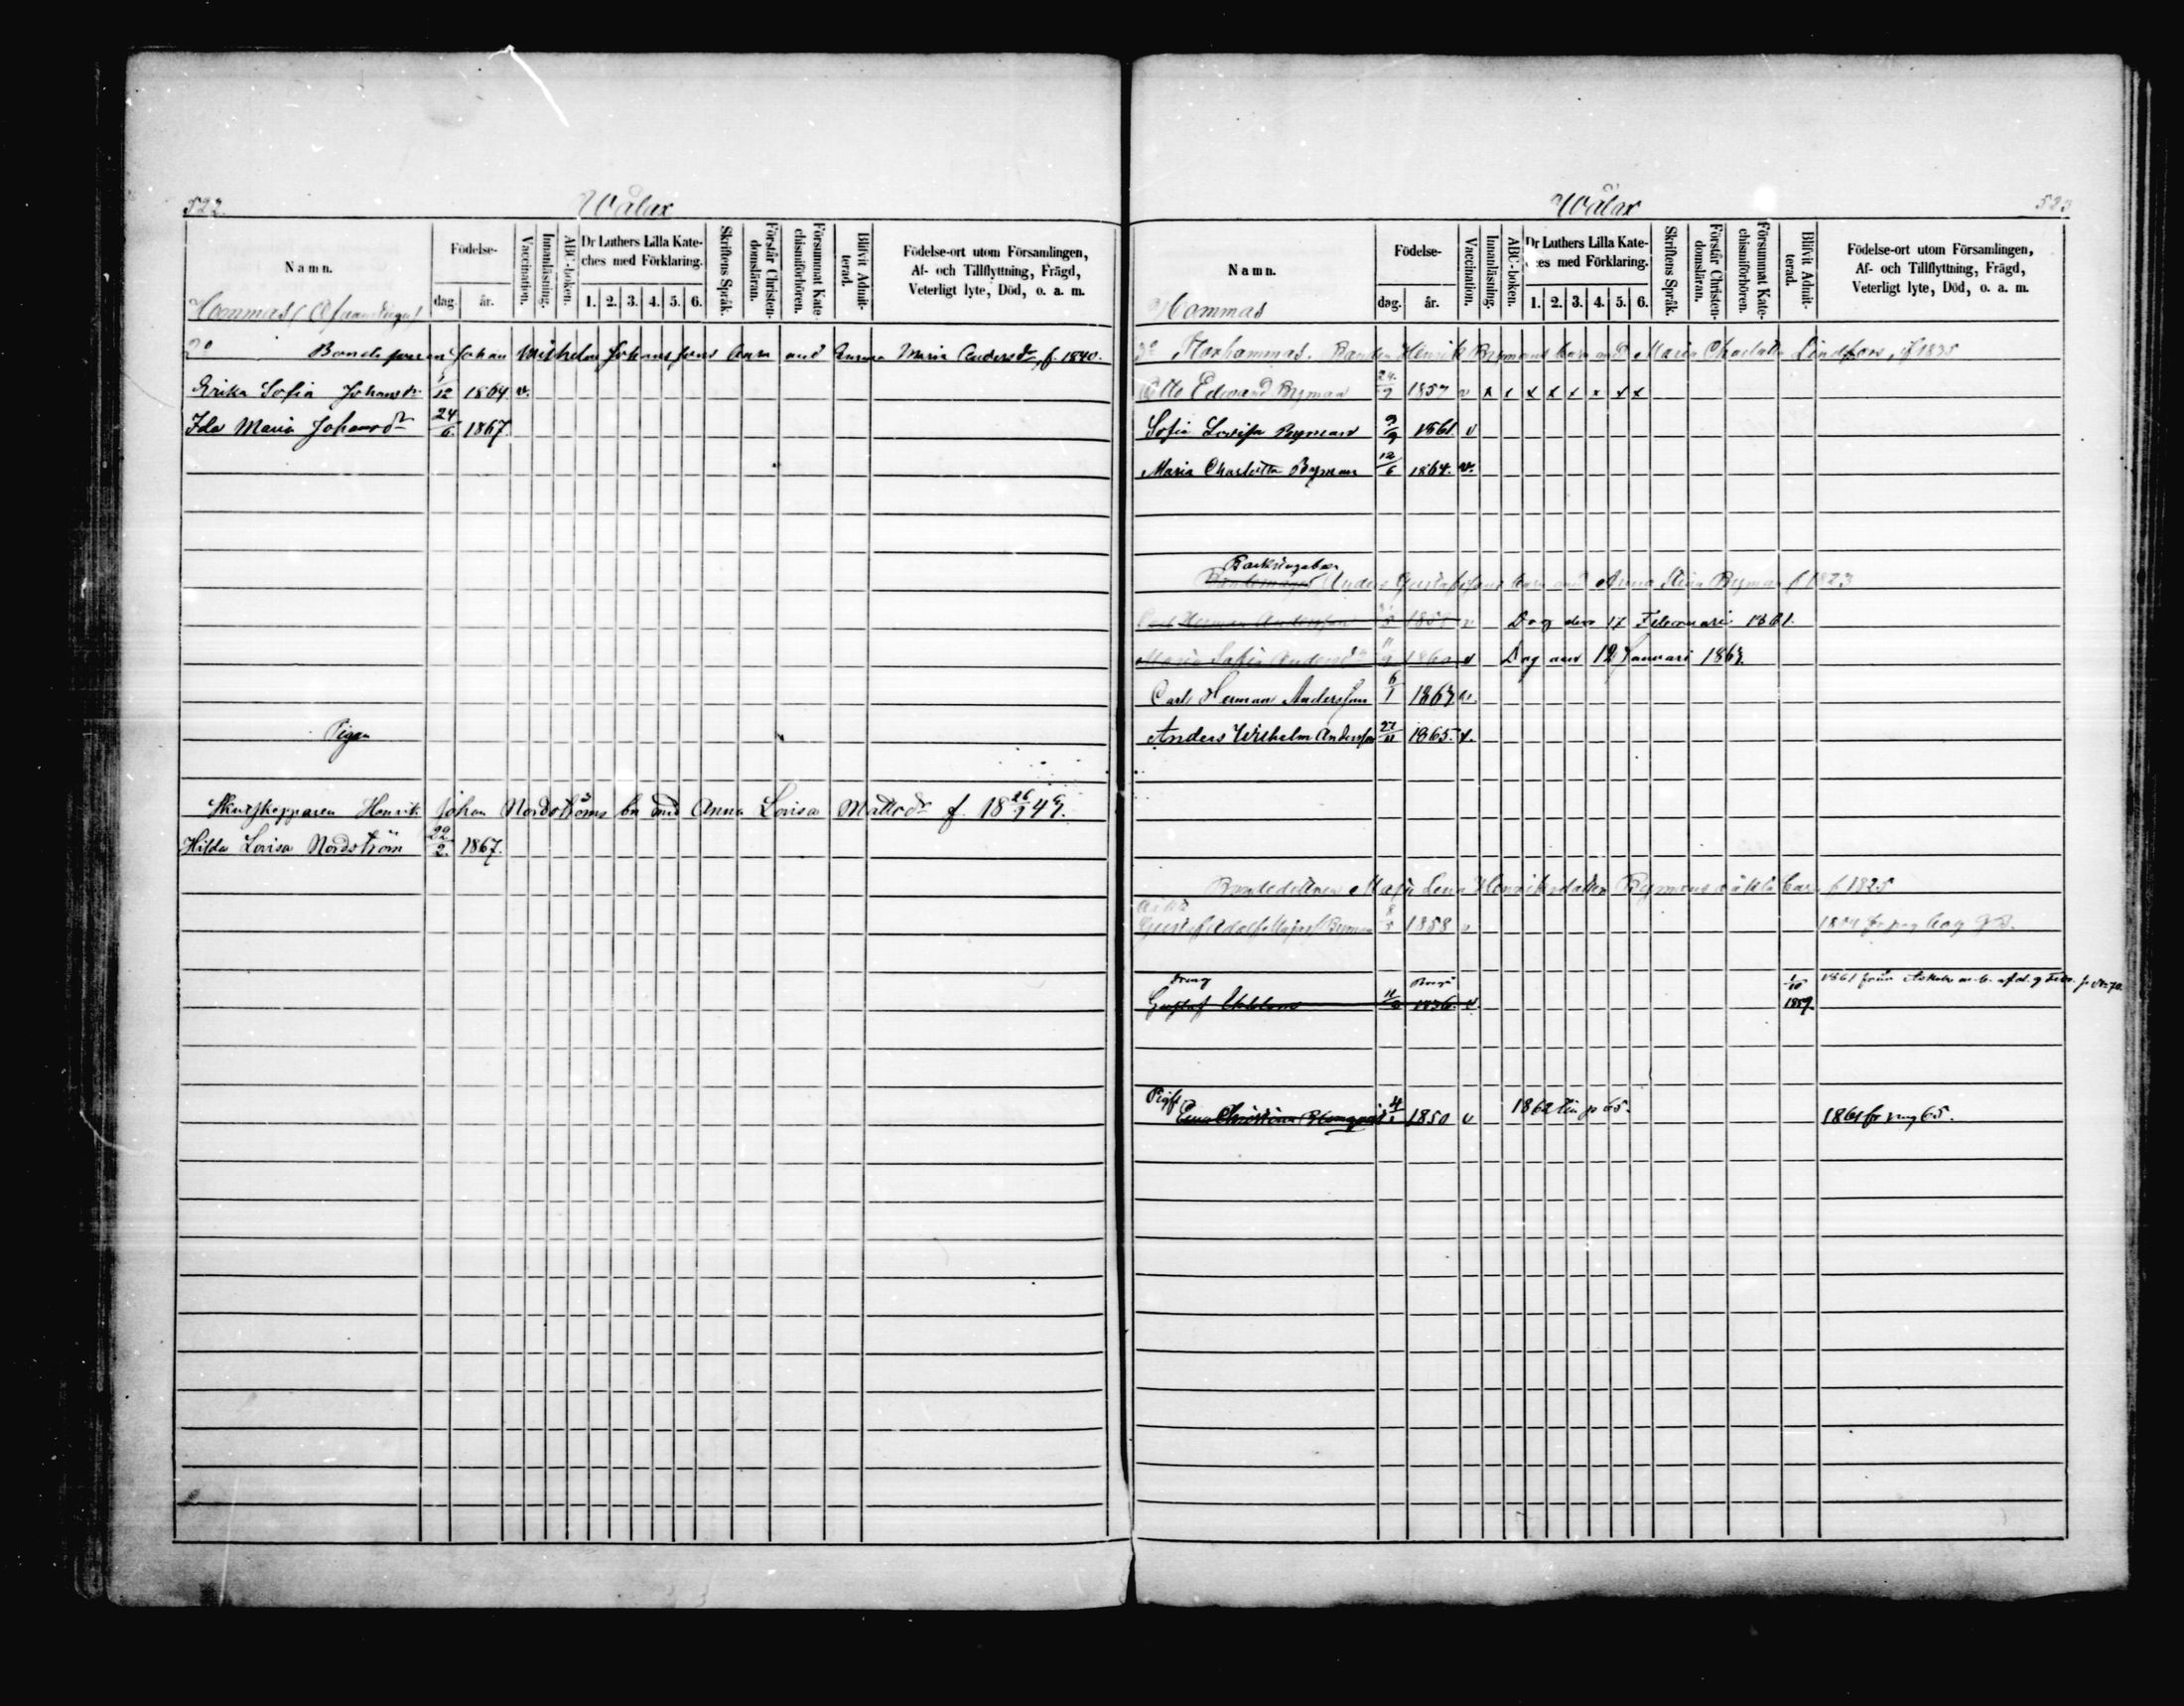 522.
Wålax
Namn.
Födelse-
dag. år.
Vaccination.
Innanläsning.
ABC-boken.
Dr Luthers Lilla Kateches med Förklaring.
1. 2. 3. 4. 5. 6.
Skriftens Språk.
Förstår Christendomsläran.
Försummat Katechismiförhören.
Blifvit Admitterad.
Födelse-ort utom Församlingen,
Af- och Tillflyttning, Frägd,
Veterligt lyte, Död, o. a. m.
Hommas
Johan Wilhelm Johanssons barn med Emma Maria Andersdr f. 1840.
Erika Sofia Johansdr 12 1864 v.
Ida Maria Johansdr 24/6 1867.
Pigan
Henrik Johan Nordströms bn med Anna Lovisa Mattsdr f. 18
Hilda Lovisa Nordström 22/2. 1867.
Wålax
523
Namn.
Födelse-
dag. år.
Vaccination.
Innanläsning.
ABC-boken.
Dr Luthers Lilla Kateches med Förklaring.
1. 2. 3. 4. 5. 6.
Skriftens Språk.
Förstår Christendomsläran.
Försummat Katechismiförhören.
Blifvit Admitterad.
Födelse-ort utom Församlingen,
Af- och Tillflyttning, Frägd,
Veterligt lyte, Död, o. a. m.
Hommas
Bonden Henrik Bymans barn med Maria Charlotta Lindfors, f 1835
Otto Edvard Byman 24/9 1857 v x x x x x x x x
Sofia Lovisa Byman 9/9 1861 v
Maria Charlotta Byman 12/6 1864. v.
Anders Gustafssons barn med Anna Stina Byman f 1823
Carl Herman Andersson v Dog den 17 Februari 1861.
Maria Sofia Andersdr 11/9 1860 v Dog den 12 Januari 1863.
Carl Herman Andersson 6/1 1863 v.
Anders Wilhelm Andersson 27/11 1865. v.
Maja Lena Henriksdotter Bymans oäkta barn f 1825
Gustaf Adolf Byman 8/5 1858 v
dreng
Gustaf 1836. v 1859. 1861 från
Christina Blomqvist 4 1850 v 1862 till p 65. 1861 fr pag 65.